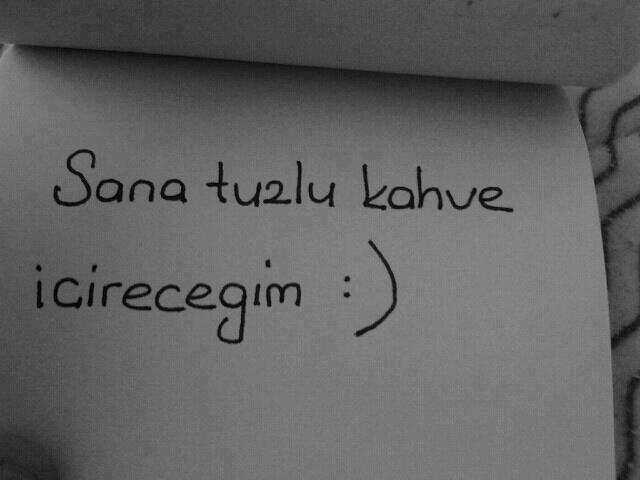 Sana tuzlu kahve
icirecegim :)